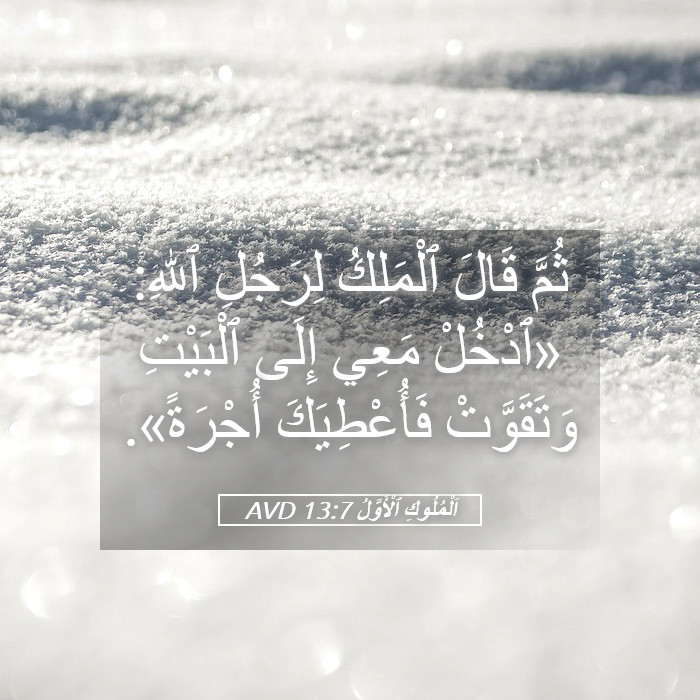 ثُمَّ قَالَ ٱلْمَلِكُ لِرَجُلِ ٱللهِ:
«ٱدْخُلْ مَعِي إِلَى ٱلْبَيْتِ
وَتَقَوَّتْ فَأُعْطِيَكَ أُجْرَةً».
اَلْمُلُوكِ ٱلْأَوَّلُ 13:7 AVD